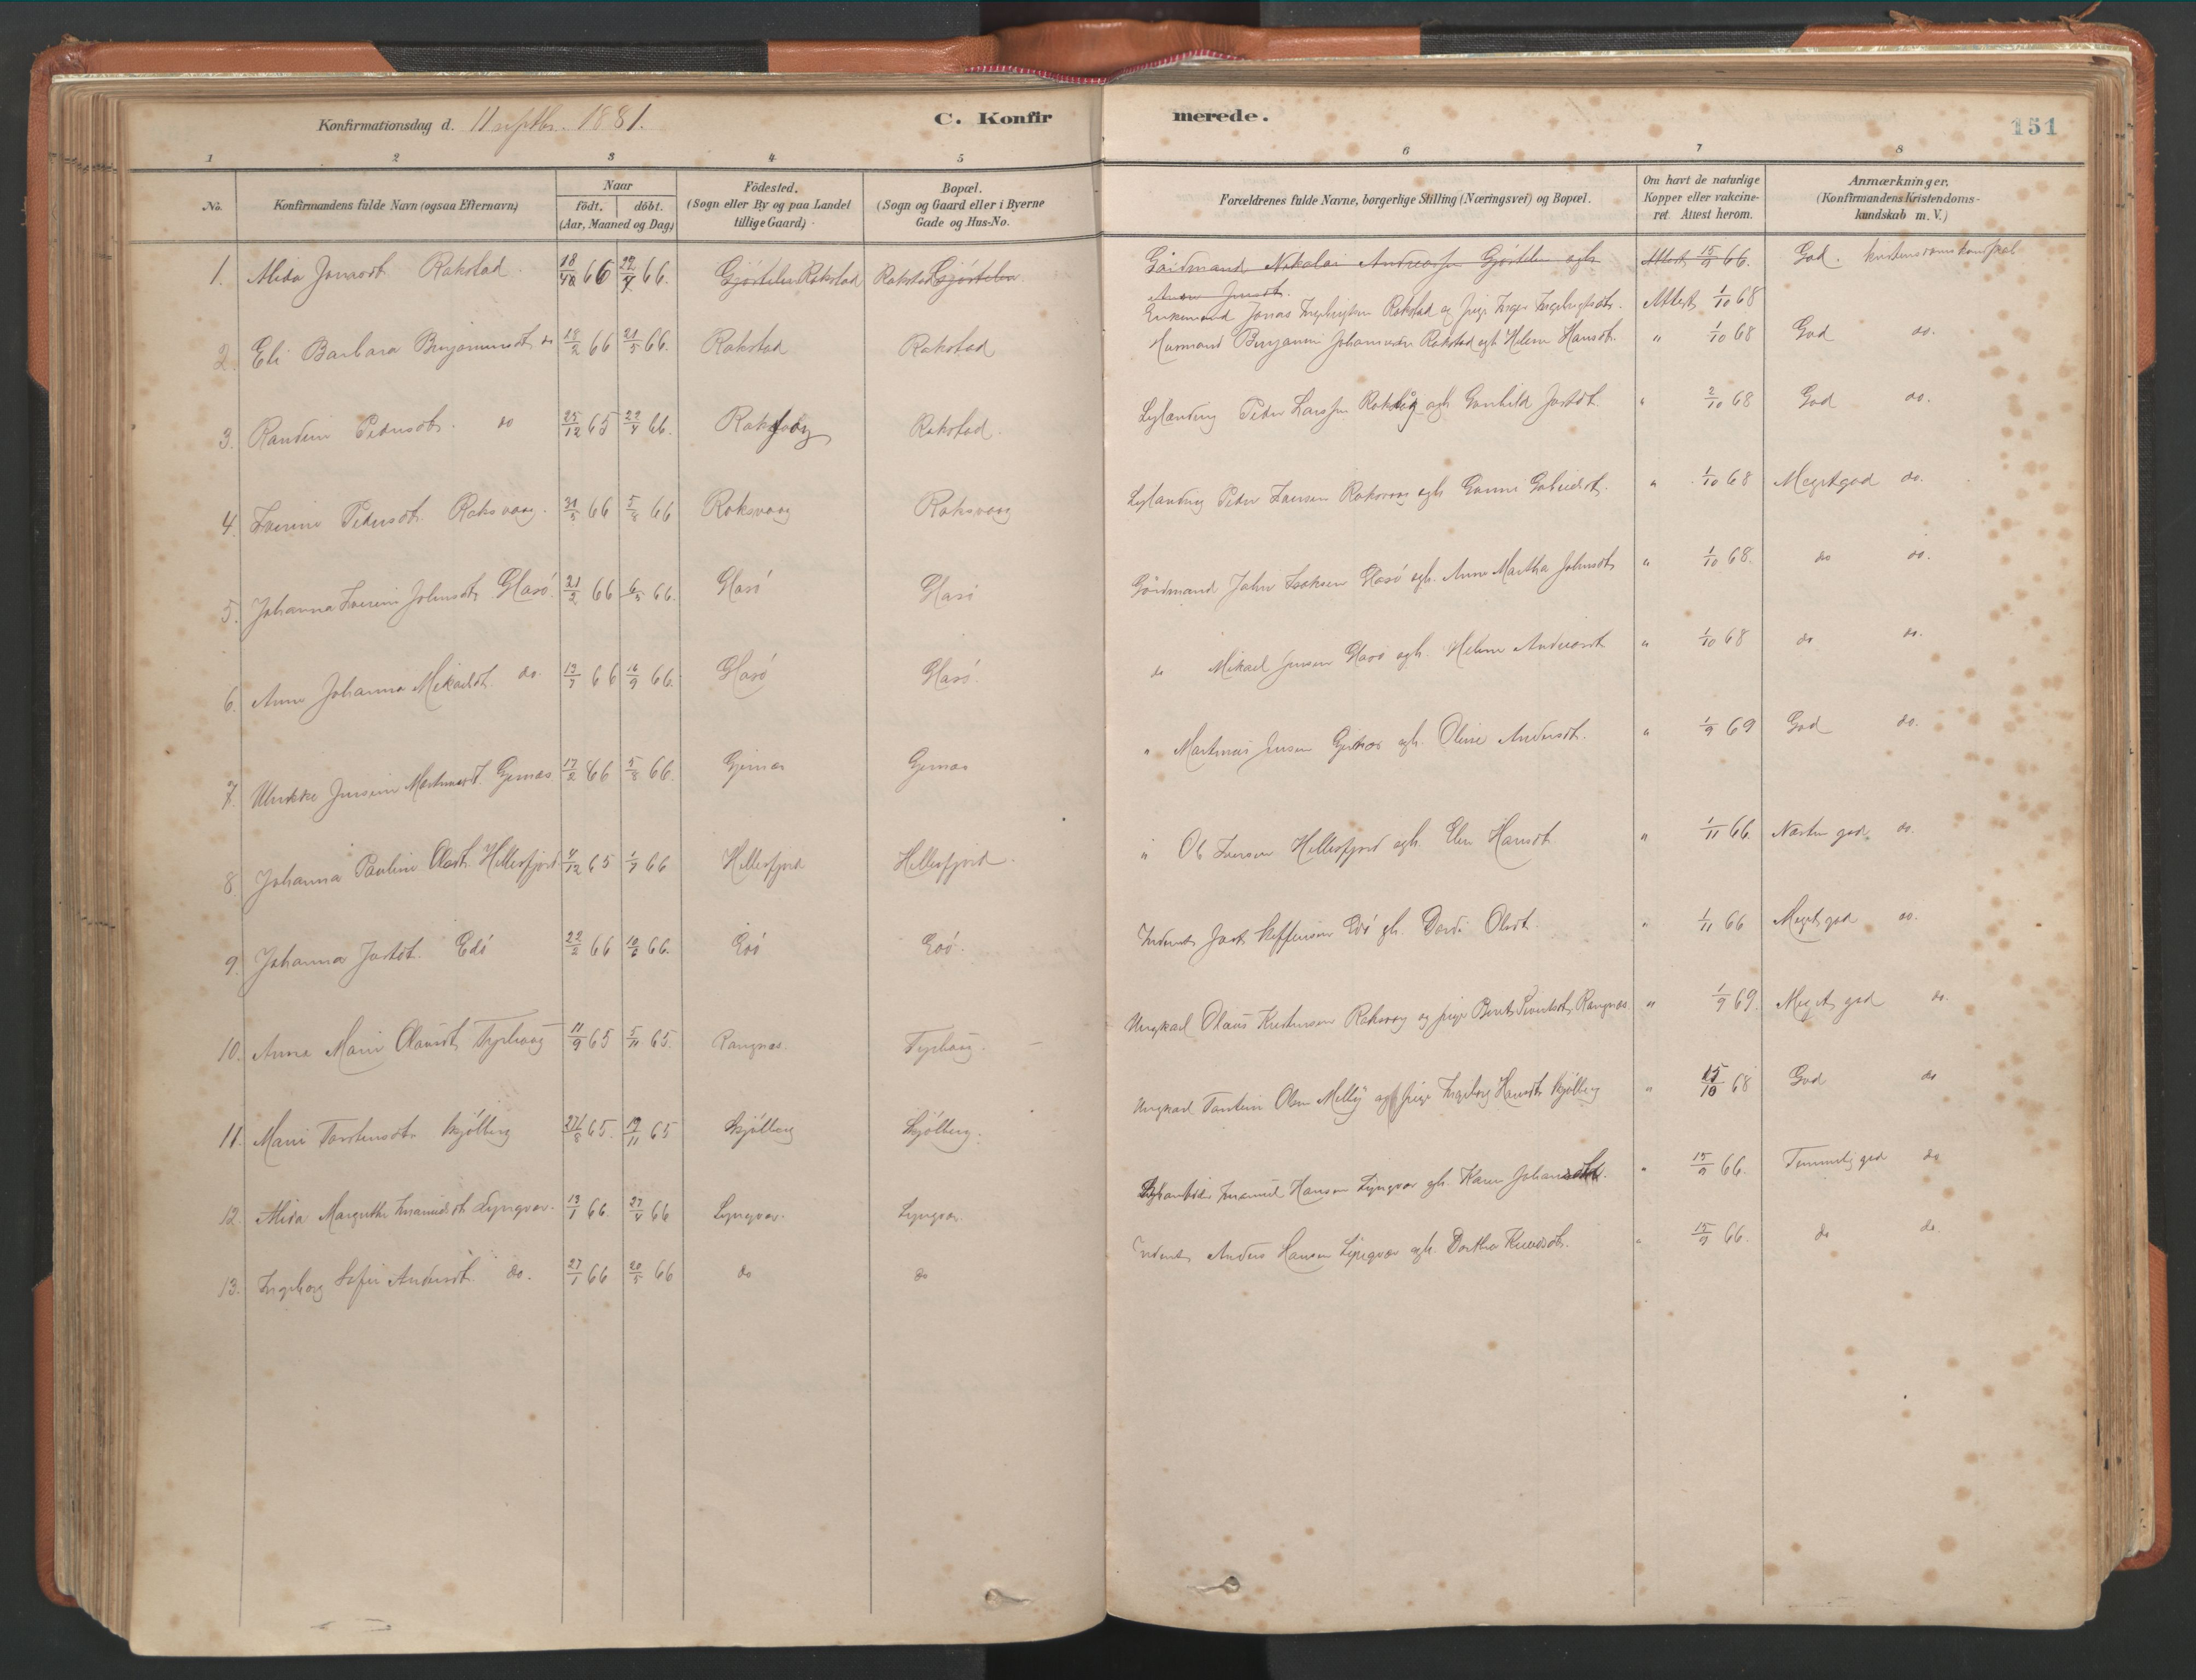 Konfirmationsdag d. 11 septbr. 1881.
C. Konfirmerede.
151
1 2 3 4 5 6 7 8
No.
Konfirmandens fulde Navn (ogsaa Efternavn)
Naar
födt. döbt.
(Aar, Maaned og Dag)
Födested.
(Sogn eller By og paa Landet
tillige Gaard)
Bopæl.
(Sogn og Gaard eller i Byerne
Gade og Hus-No.
Forældrenes fulde Navne, borgerlige Stilling (Næringsvei) og Bopæl.
Om havt de naturlige
Kopper eller vakcine-
ret. Attest herom.
Anmærkninger.
(Konfirmandens Kristendoms-
kundskab m.V.)
1. Alida Jonasdt. Rokstad. 18/10 66 22/7 66. Gjöstelen Rokstad Rokstad Gjöstelen. Gårdmand Nikolai Andreassen Gjöstelen og h. Attest 15/9 66. God. kristendomskundskab
Enkemand Jonas Ingebrigtsen Rokstad og pige Inger Ingebrigtsdt. Attest 1/10 68
2. Eli Barbara Benjaminsdt. do 18/2 66 21/5 66. Rokstad Rokstad Husmand Benjamin Johannesen Rokstad og h. Helene Hansdt. " 1/10 68 God do.
3. Randine Pedersdt. do 25/12 65 22/4 66. Roksvåg Rokstad. Peder Larssen Roksvåg og h. Gunhild Jostdt. " 2/10 68 God do.
4. Iverine Pedersdt. Roksvaag. 31/5 66 5/8 66 Roksvaag Roksvaag Peder Iversen Roksvaag og h. " 1/10 68 Megetgod do.
5. Johanna Iverine Johnsdt. Glasö. 21/2 66 6/5 66. Glasö Glasö Gårdmand John Isaksen Glasö og h. Anne Martha Johnsdt. " 1/10 68. do do.
6. Anne Johanna Mikaelsdt. do. 13/7 66 16/9 66. Glasö Glasö. do Mikael Jensen Glasö og h. Helene Andreasdt. " 1/10 68 do do.
7. Ulrikke Jensine Martinusdt. Gjernæs 17/2 66 5/8 66. Gjernæs Gjernæs " Martinus Jensen Gjernæs og h. Oline Andersdt. " 1/9 69 God do.
8. Johanna Pauline Olsdt. Hellesfjord 4/12 65 1/4 66 Hellesfjord Hellesfjord. " Ole Iversen Hellesfjord og h. Elen Hansdt. " 1/11 66. Næsten god do.
9. Johanna Jostdt. Edö 22/2 66 10/6 66. Edö Edö. Inderst Jost Steffensen Edö og h. Dordi Olsdt. " 1/11 66 Meget god do.
10. Anna Marie Olausdt. Tyrhaug 11/9 65 5/11 65. Rangnæs. Tyrhaug. Ungkarl Olaus Kristensen Roksvag og pige Berit Sivertsdt. Rangnæs " 1/9 69. Meget god do.
11. Marie Torstensdt. Skjölberg 27/8 65. 19/11 65 Skjölberg Skjölberg. Ungkarl Torsten Olsen Melby og pige Ingeborg Hansdt. Skjölberg " 15/10 68 God do
12. Alida Margrethe Imanuelsdt. Lyngvær. 13/1 66. 27/4 66 Lyngvær. Lyngvær. Imanuel Hansen Lyngvær og h. Karen Johansdt. " 15/9 66. Temmelig god do
13. Ingeborg Sofie Andersdt. do. 27/1 66 20/5 66 do do Inderst Anders Hansen Lyngvær og h. Dorthea Knudsdt. " 15/9 66. do do